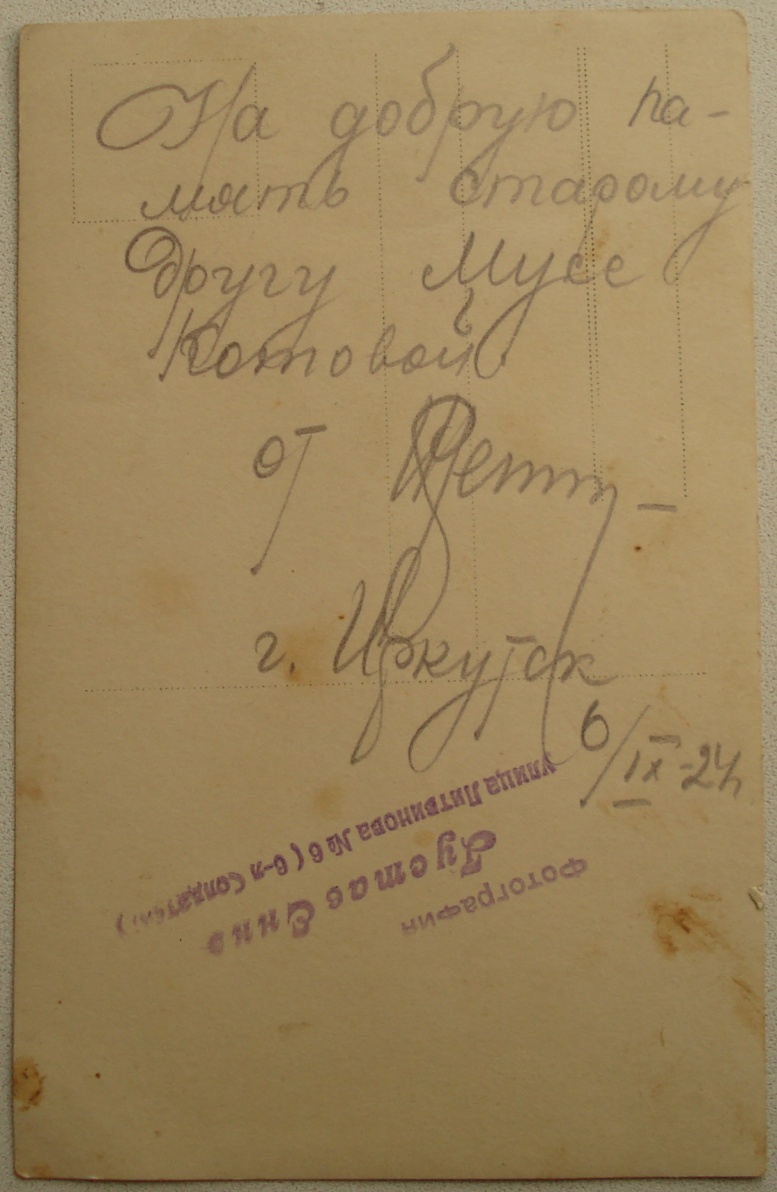 На добрую па-
мять старому
другу Мусе
Котовой
от
г. Иркутск
6/IX-24
Фотография
Густав Энне
улица Литвинова № 6 (6-я Солдатск)